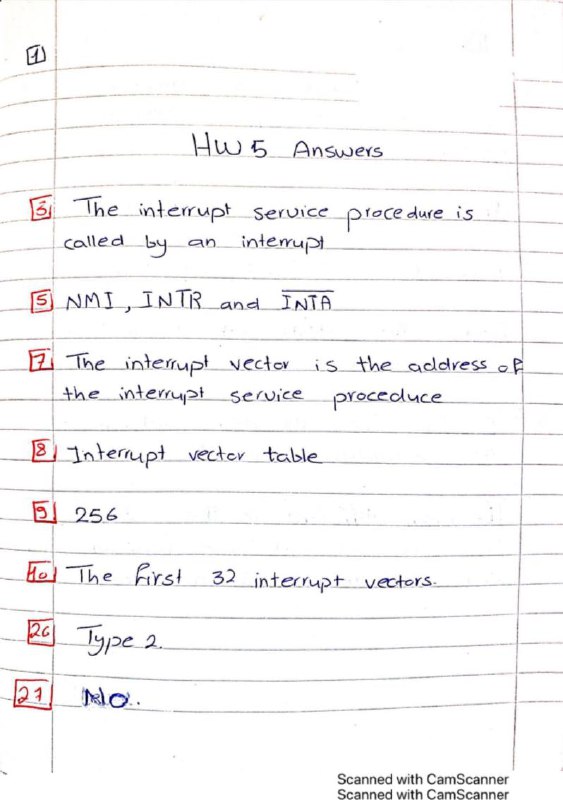 1
HW 5 Answers
3 The interrupt service procedure is
called by an interrupt
5 NMI, INTR and I̅N̅T̅A̅
7 The interrupt vector is the address of
the interrupt service proceduce
8 Interrupt vector table
9 256
10 The first 32 interrupt vectors.
26 Type 2.
27 No.
Scanned with CamScanner
Scanned with CamScanner